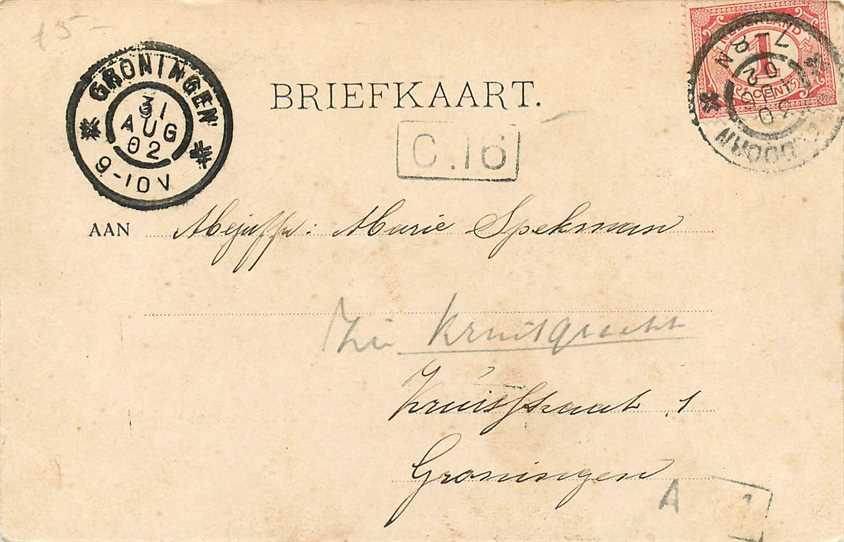 15-
GRONINGEN
31
AUG
02
9-10V
BRIEFKAART.
C.16
NEDERLAND
1
CENT
7-8N
AAN Mejuffr: Marie Spekman
Kruisstraat 1
Groningen
A 1